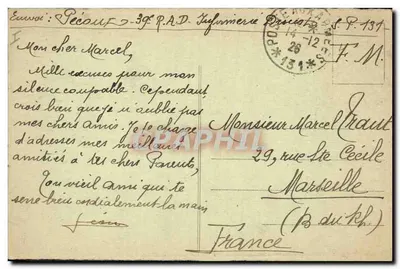 Envoi: Pécout - 39e R.A.D. Infirmerie Divisre S.P. 131
F.M.
14-12
26
*131*
Mon cher Marcel,
Mille excuses pour mon
silence coupable. Cependant
crois bien que je n'oublie pas
mes chers amis. Je te charge
d'adresses mes meilleurs
amitiés à tes chers Parents,
Ton vieil ami qui te
serre bien cordialement la main
Monsieur Marcel Traut
29, rue Ste Cécile
Marseille
(B. du Rh.)
France